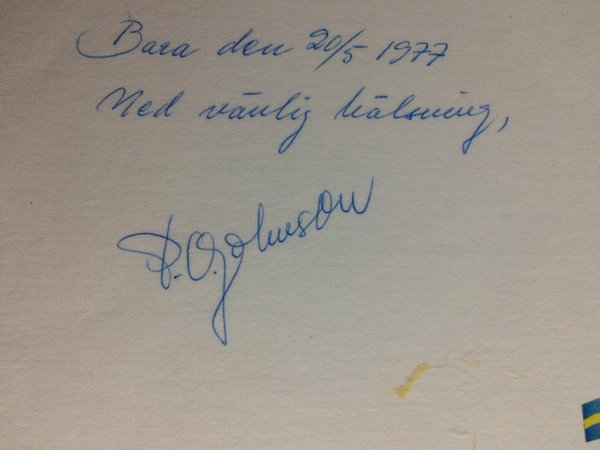 Bara den 20/5 1977
Med vänlig hälsning,
P.O. Johnson